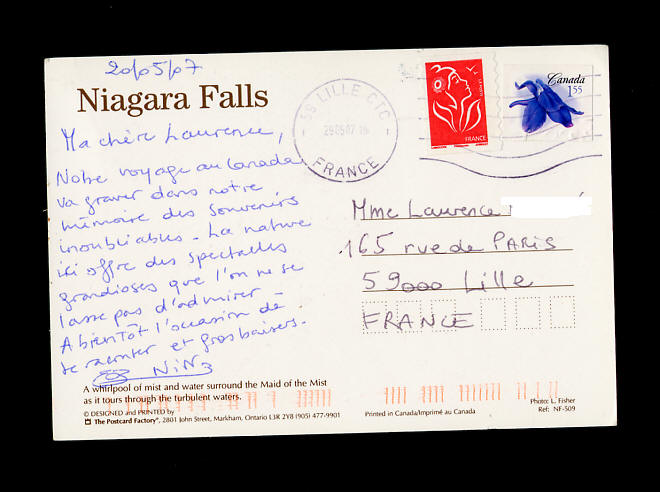 20/05/07
Niagara Falls
Ma chère Laurence,
Notre voyage au Canada
va graver dans notre
mémoire des souvenirs
inoubliables. La nature
ici offre des spectacles
grandioses que l'on ne se
lasse pas d'admirer.
A bientôt l'occasion de
te raconter et gros baisers.
NiN
A whirlpool of mist and water surround the Maid of the Mist
as it tours through the turbulent waters.
© DESIGNED and PRINTED by
The Postcard Factory®, 2801 John Street, Markham, Ontario L3R 2Y8 (905) 477-9901
59 LILLE CTC
29 05 07
FRANCE
LA POSTE
FRANCE
Canada
1.55
Mme Laurence
165 rue de PARIS
59000 Lille
FRANCE
Printed in Canada/Imprimé au Canada
Photo: L. Fisher
Ref: NF-509